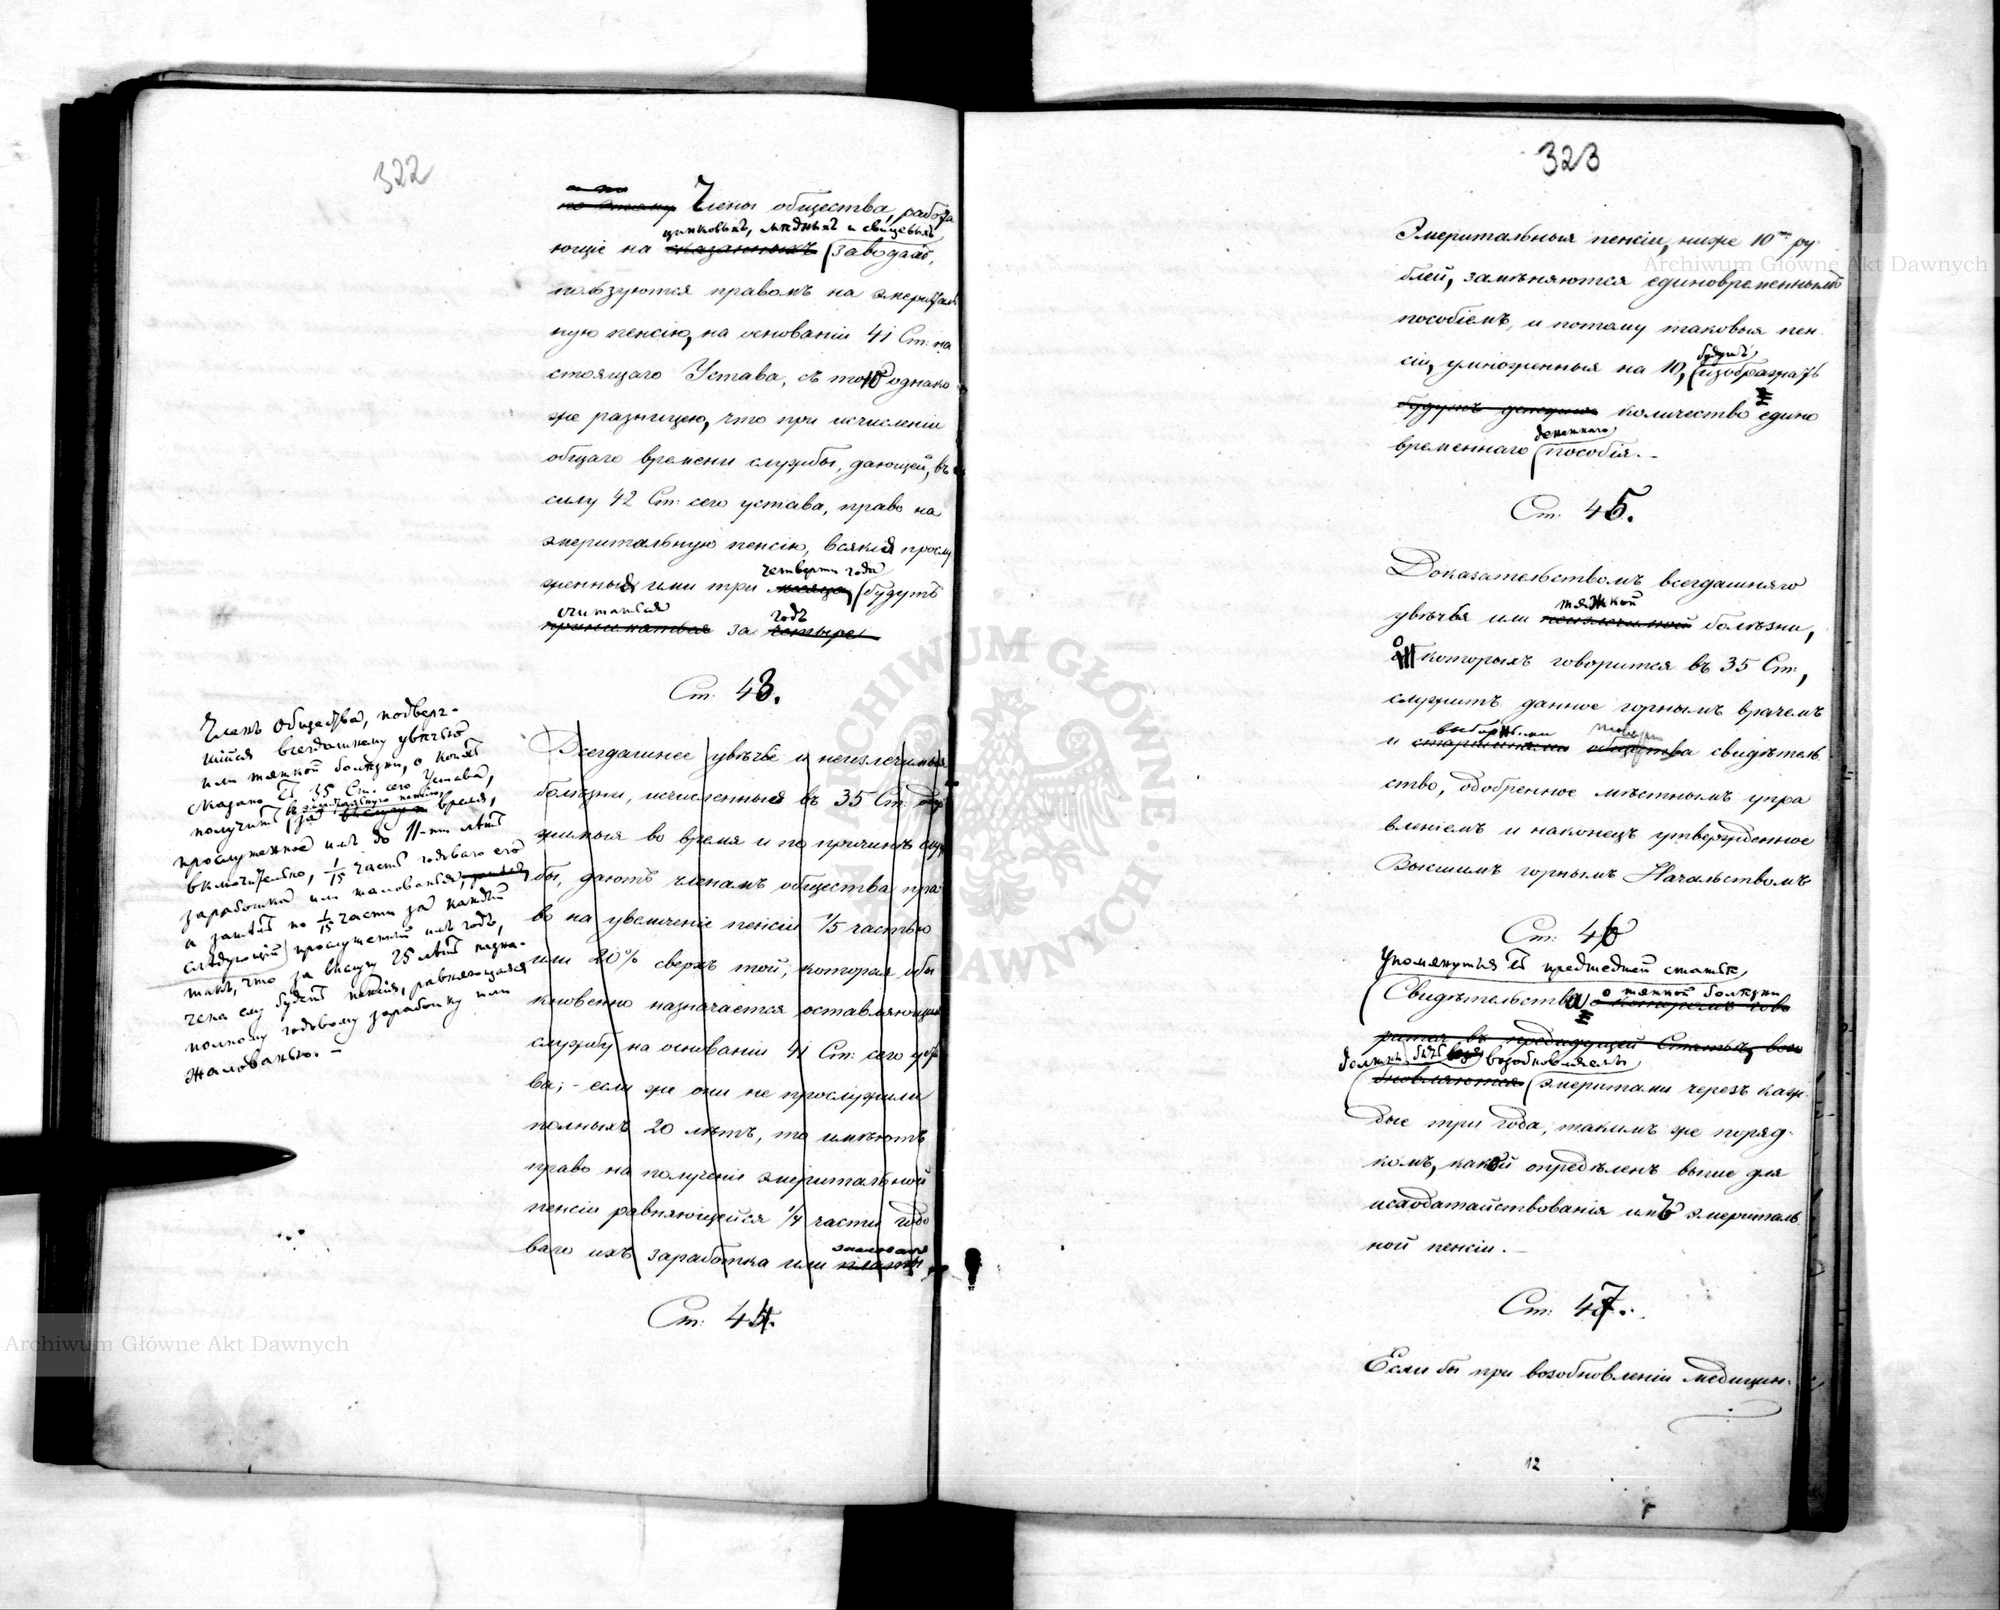 322
а по
по этому Члены общества, работа
цинковыхъ, мѣдныхъ и свинцовыхъ
ющіе на сказанныхъ заводахъ,
пользуются правомъ на эмериталь
ную пенсію, на основаніи 41 Ст: на
стоящаго Устава, съ тою однако
же разницею, что при исчисленіи
общаго времени службы, дающей, въ
силу 42 Ст: сего устава, право на
эмеритальную пенсію, всякія прослу
четверти года
женныя ими три мѣсяца будутъ
считаться годъ
приниматься за четыре
Ст. 43.
Членъ Общества, подверг-
шійся всегдашнему увѣчью
или тяжкой болѣзни, о коихъ
сказано въ 35 Ст. сего Устава,
эмеритальную пенсію,
получитъ за время,
прослуженное имъ до 11-ти лѣтъ
включительно, 1/15 часть годоваго его
заработка или жалованья,
а затѣмъ по 1/15 части за каждый
слѣдующій прослуженный имъ годъ,
такъ, что за выслугу 25 лѣтъ назна-
чена ему будетъ пенсія, равняющаяся
полному годовому заработку или
жалованью. –
Всегдашнее увѣчье и неизлечимыя
болѣзни, исчисленныя въ 35 Ст:
жимыя во время и по причинѣ служ
бы, даютъ членамъ общества пра
во на увеличеніе пенсіи 1/5 частью
или 20% сверхъ той, которая обы
кновенно назначается оставляющимъ
службу на основаніи 41 Ст: сего уста
ва; - если же они не прослужили
полныхъ 20 лѣтъ, то имѣютъ
право на полученіе эмеритальной
пенсіи равняющейся 1/4 части годо
жалованья
ваго ихъ заработка или платы,
Ст: 44.
323
Эмеритальныя пенсіи, ниже 10ти ру
блей, замѣняются единовременнымъ
пособіемъ, и потому таковыя пен
будутъ
сіи, умноженныя на 10, изображать
будутъ количество едино
денежнаго
временнаго пособія. –
Ст. 45.
Доказательствомъ всегдашняго
тяжкой
увѣчья или неизлечимой болѣзни,
о которыхъ говорится въ 35 Ст:,
служитъ данное горнымъ врачемъ
выборными
и старшинами общества свидѣтель
ство, одобренное мѣстнымъ упра
вленіемъ и наконецъ утвержденное
Высшимъ горнымъ Начальствомъ
Ст: 46
Упомянутыя въ предшедшей статьѣ,
о тяжкой болѣзни
Свидѣтельства о которомъ гово
рится въ предидущей Статьѣ, возо
должны быть возобновляемы
бновляются эмеритами черезъ каж
дые три года, такимъ же поряд-
комъ, какой опредѣленъ выше для
исходатайствованія имъ эмериталь
ной пенсіи. –
Ст: 47.
Если бы при возобновленіи медицин-
12
Archiwum Główne Akt Dawnych
Archiwum Główne Akt Dawnych
ARCHIWUM GŁÓWNE AKT DAWNYCH